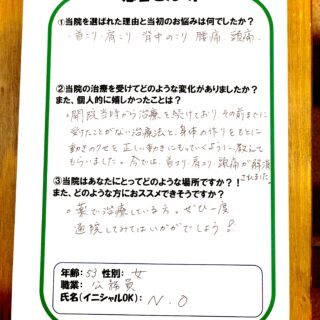 ①当院を選ばれた理由と当初のお悩みは何でしたか?
・首こり 肩こり 背中のこり 腰痛 頭痛
②当院の治療を受けてどのような変化がありましたか?
また、個人的に嬉しかったことは?
。開院当時から治療を続けており その前までに
受けたことがない治療法と、身体の作りをもとに
動きのクセを正しい動きにもっていくように教えて
もらいました。今では、首こり 肩こり 頭痛が解消
されました。
③当院はあなたにとってどのような場所ですか?!
また、どのような方におススメできそうですか?
。薬で治療している方。ぜひ一度
通院してみてはいかがでしょう?
年齢:53 性別:女
職業:公務員
氏名(イニシャルOK):N.O